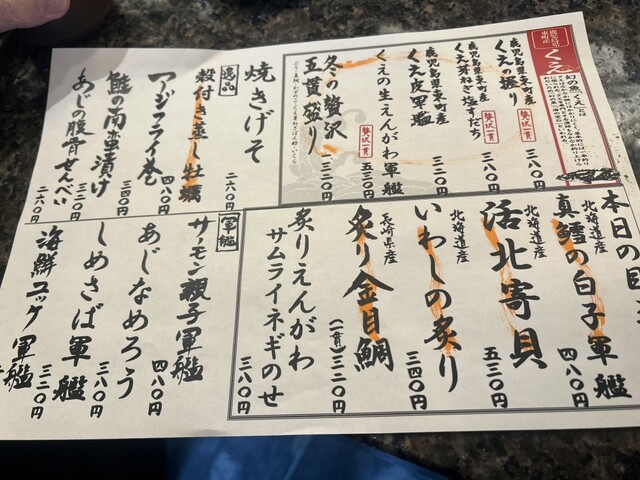 鹿児島県
東町産
くえ
幻の魚「くえ」とは
鹿児島県東町産
くえの握り
贅沢一貫
三八〇円
鹿児島県東町産
くえ芽ねぎ塩すだち
贅沢一貫
三八〇円
鹿児島県東町産
くえ皮軍艦
三二〇円
くえの生えんがわ軍艦
贅沢一貫
五三〇円
冬の贅沢
五貫盛り
一三二〇円
逸品
焼きげそ
二六〇円
殻付き蒸し牡蠣
四八〇円
アジフライ巻
四八〇円
鮭の南蛮漬け
三四〇円
あじの腹骨せんべい
三二〇円
二六〇円
本日の目
北海道産
真鱈の白子軍艦
四八〇円
北海道産
活北寄貝
五三〇円
北海道産
いわしの炙り
三四〇円
長崎県産
炙り金目鯛
(一貫)三二〇円
炙りえんがわ
サムライネギのせ
三八〇円
軍艦
サーモン親子軍艦
四八〇円
あじなめろう
四八〇円
しめさば軍艦
三八〇円
海鮮ユッケ軍艦
三二〇円